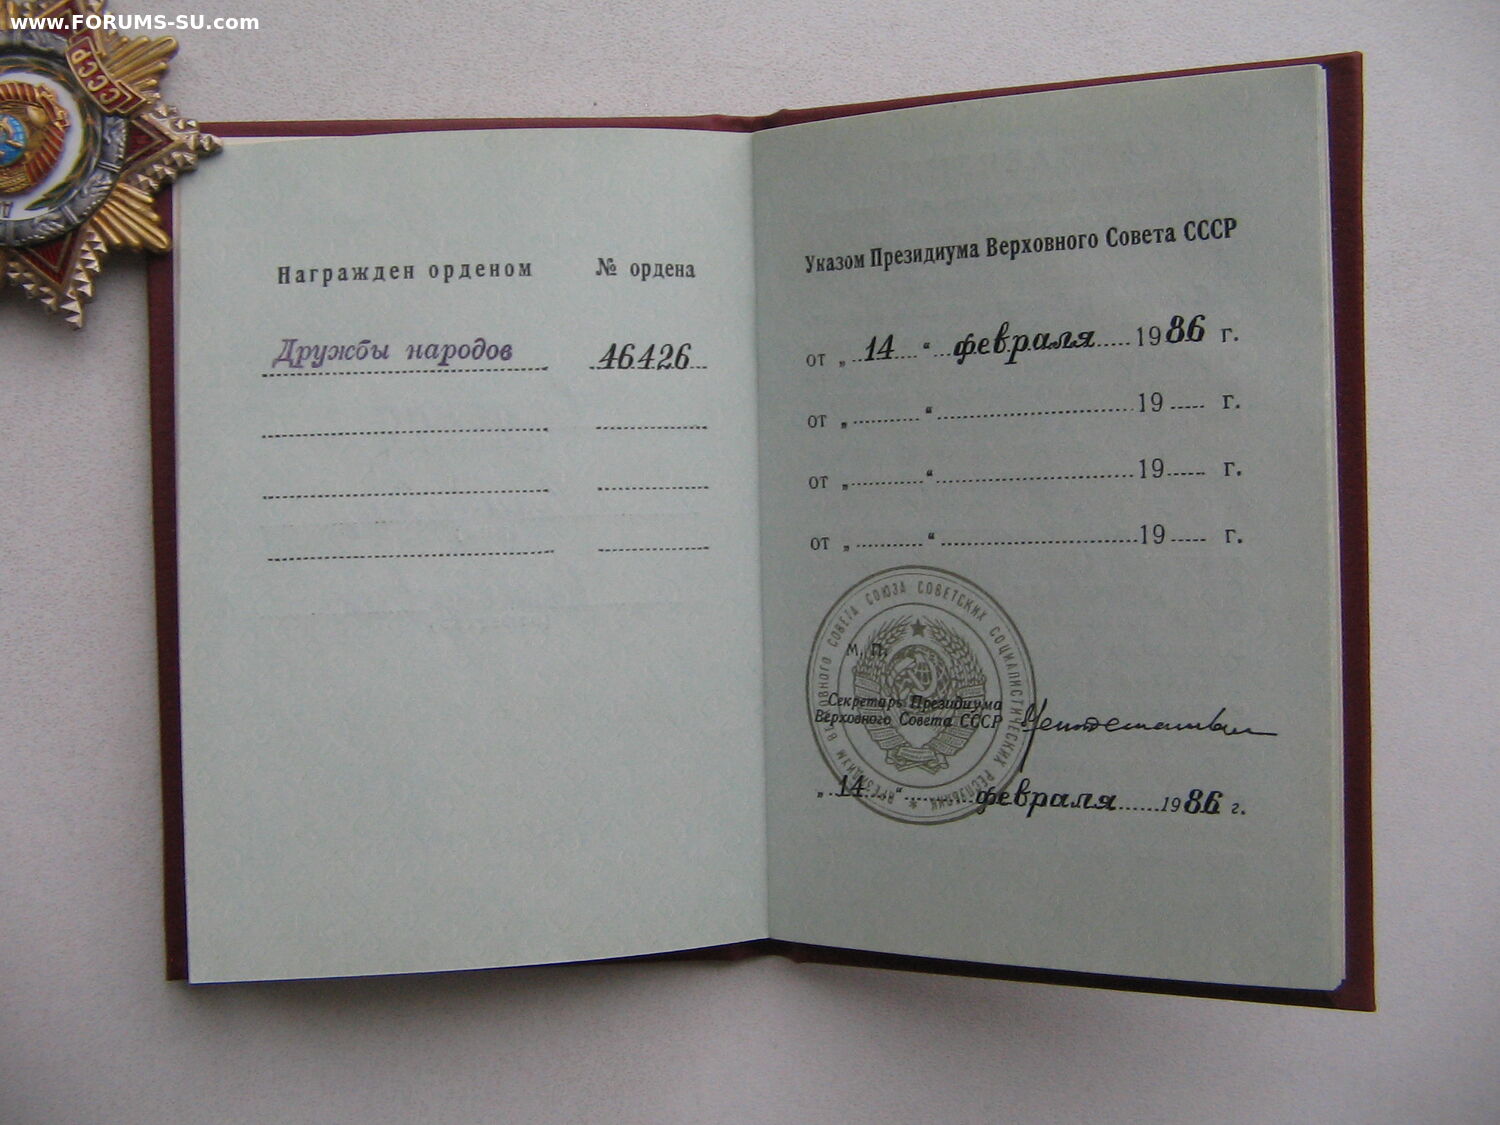 www.FORUMS-SU.com
СССР
Награжден орденом № ордена
Дружбы народов 46426
Указом Президиума Верховного Совета СССР
от „ 14 “ февраля 1986 г.
от „ “ 19 г.
от „ “ 19 г.
от „ “ 19 г.
ПРЕЗИДИУМ ВЕРХОВНОГО СОВЕТА СОЮЗА СОВЕТСКИХ СОЦИАЛИСТИЧЕСКИХ РЕСПУБЛИК
М. П.
Секретарь Президиума
Верховного Совета СССР
„ 14 “ февраля 1986 г.